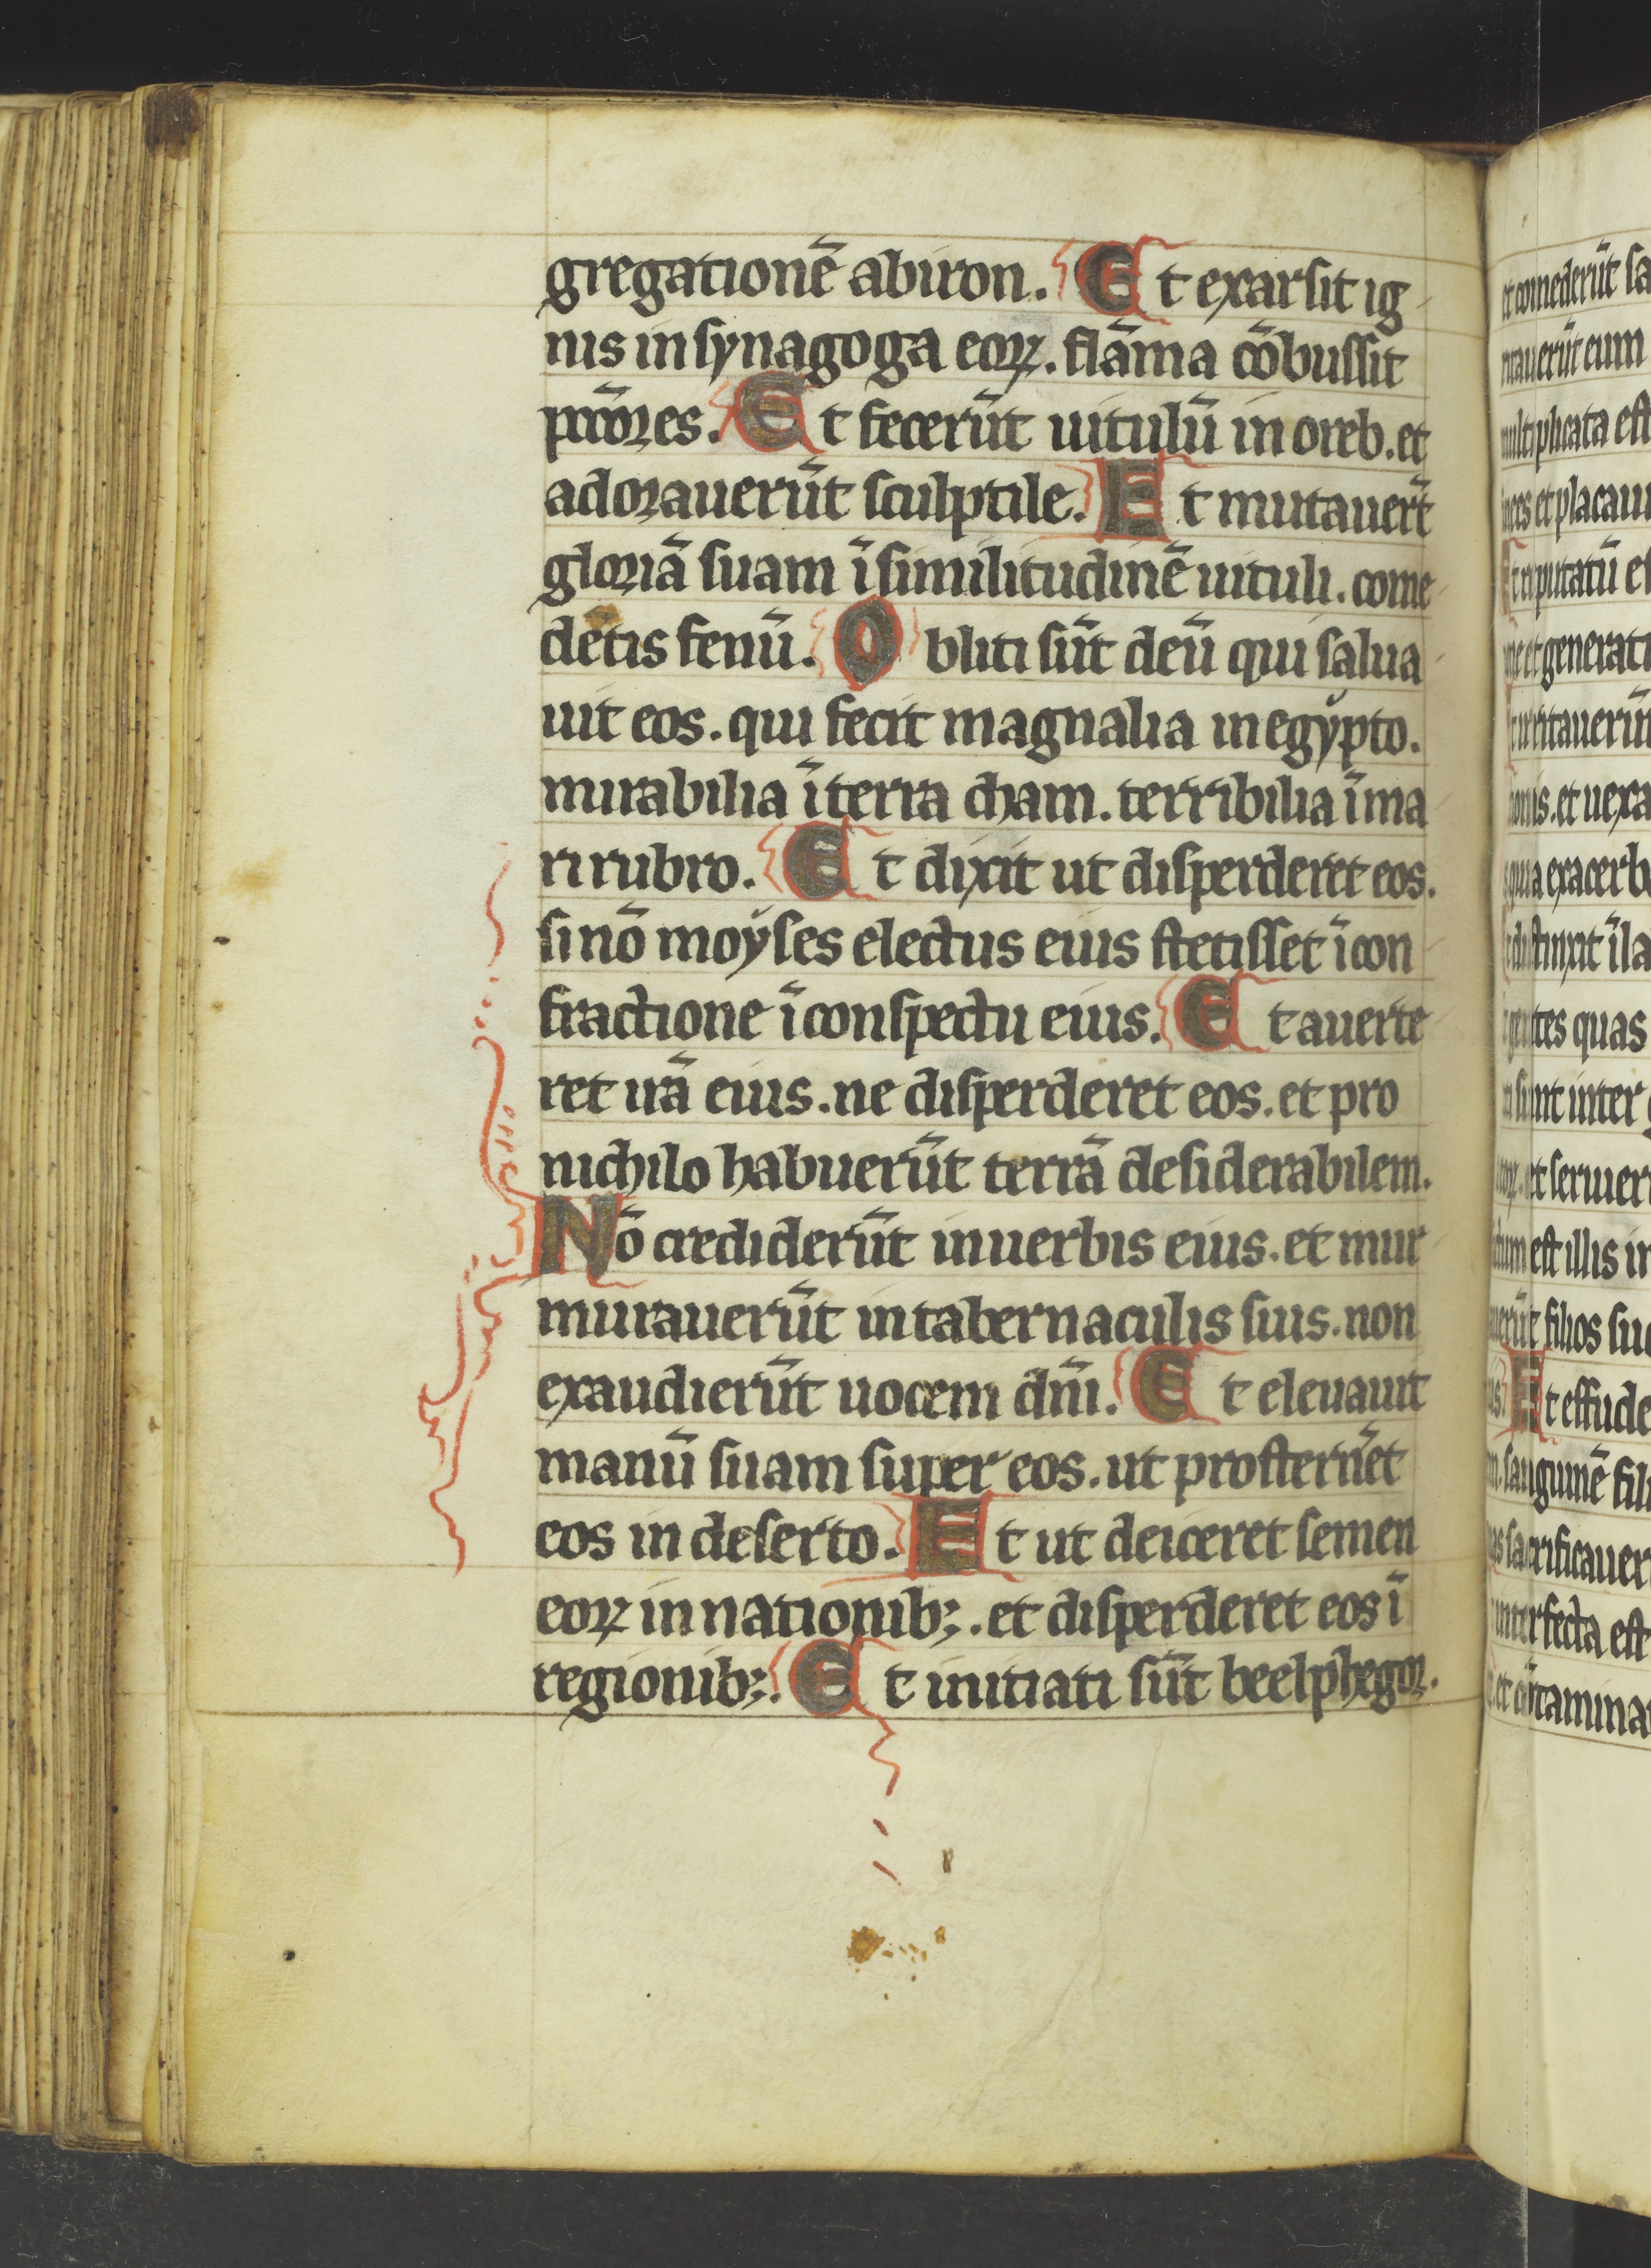 gregationē abiron. Et exarsit ig
nis in synagoga eoꝝ. flāma cōbussit
pctōres. Et fecerūt uitulū in oreb. et
adorauerūt sculptile. Et mutauerūt
gloriā suam ī similitudinē uituli. come
detis fenū. Obliti sūt deū qui salua
uit eos. qui fecit magnalia in egypto.
mirabilia ī terra cham. terribilia ī ma
ri rubro. Et dixit ut disperderet eos.
si nō moyses electus eius stetisset ī con
fractione ī conspectu eius. Et auerte
ret irā eius. ne disperderet eos. et pro
nichilo habuerūt terrā desiderabilem.
Nō crediderūt in uerbis eius. et mur
murauerūt in tabernaculis suis. non
exaudierūt uocem dn̄i. Et eleuauit
manū suam super eos. ut prosternēt
eos in deserto. Et ut deiceret semen
eoꝝ in nationibꝫ. et disperderet eos ī
regionibꝫ. Et initiati sūt beelphegor.
et comederūt sa
ritauerūt eum
multiplicata est
nees et placaui
Et reputatū es
ne et generati
Et irritauerūt
onis. et uexa
quia exacerb
t distinxit ī la
gentes quas
ti sunt inter g
eoꝝ. et seruier
dum est illis in
erūt filios suo
us. Et effude
m. sanguinē fili
as sacrificauer
interfecta est
et cōtamina